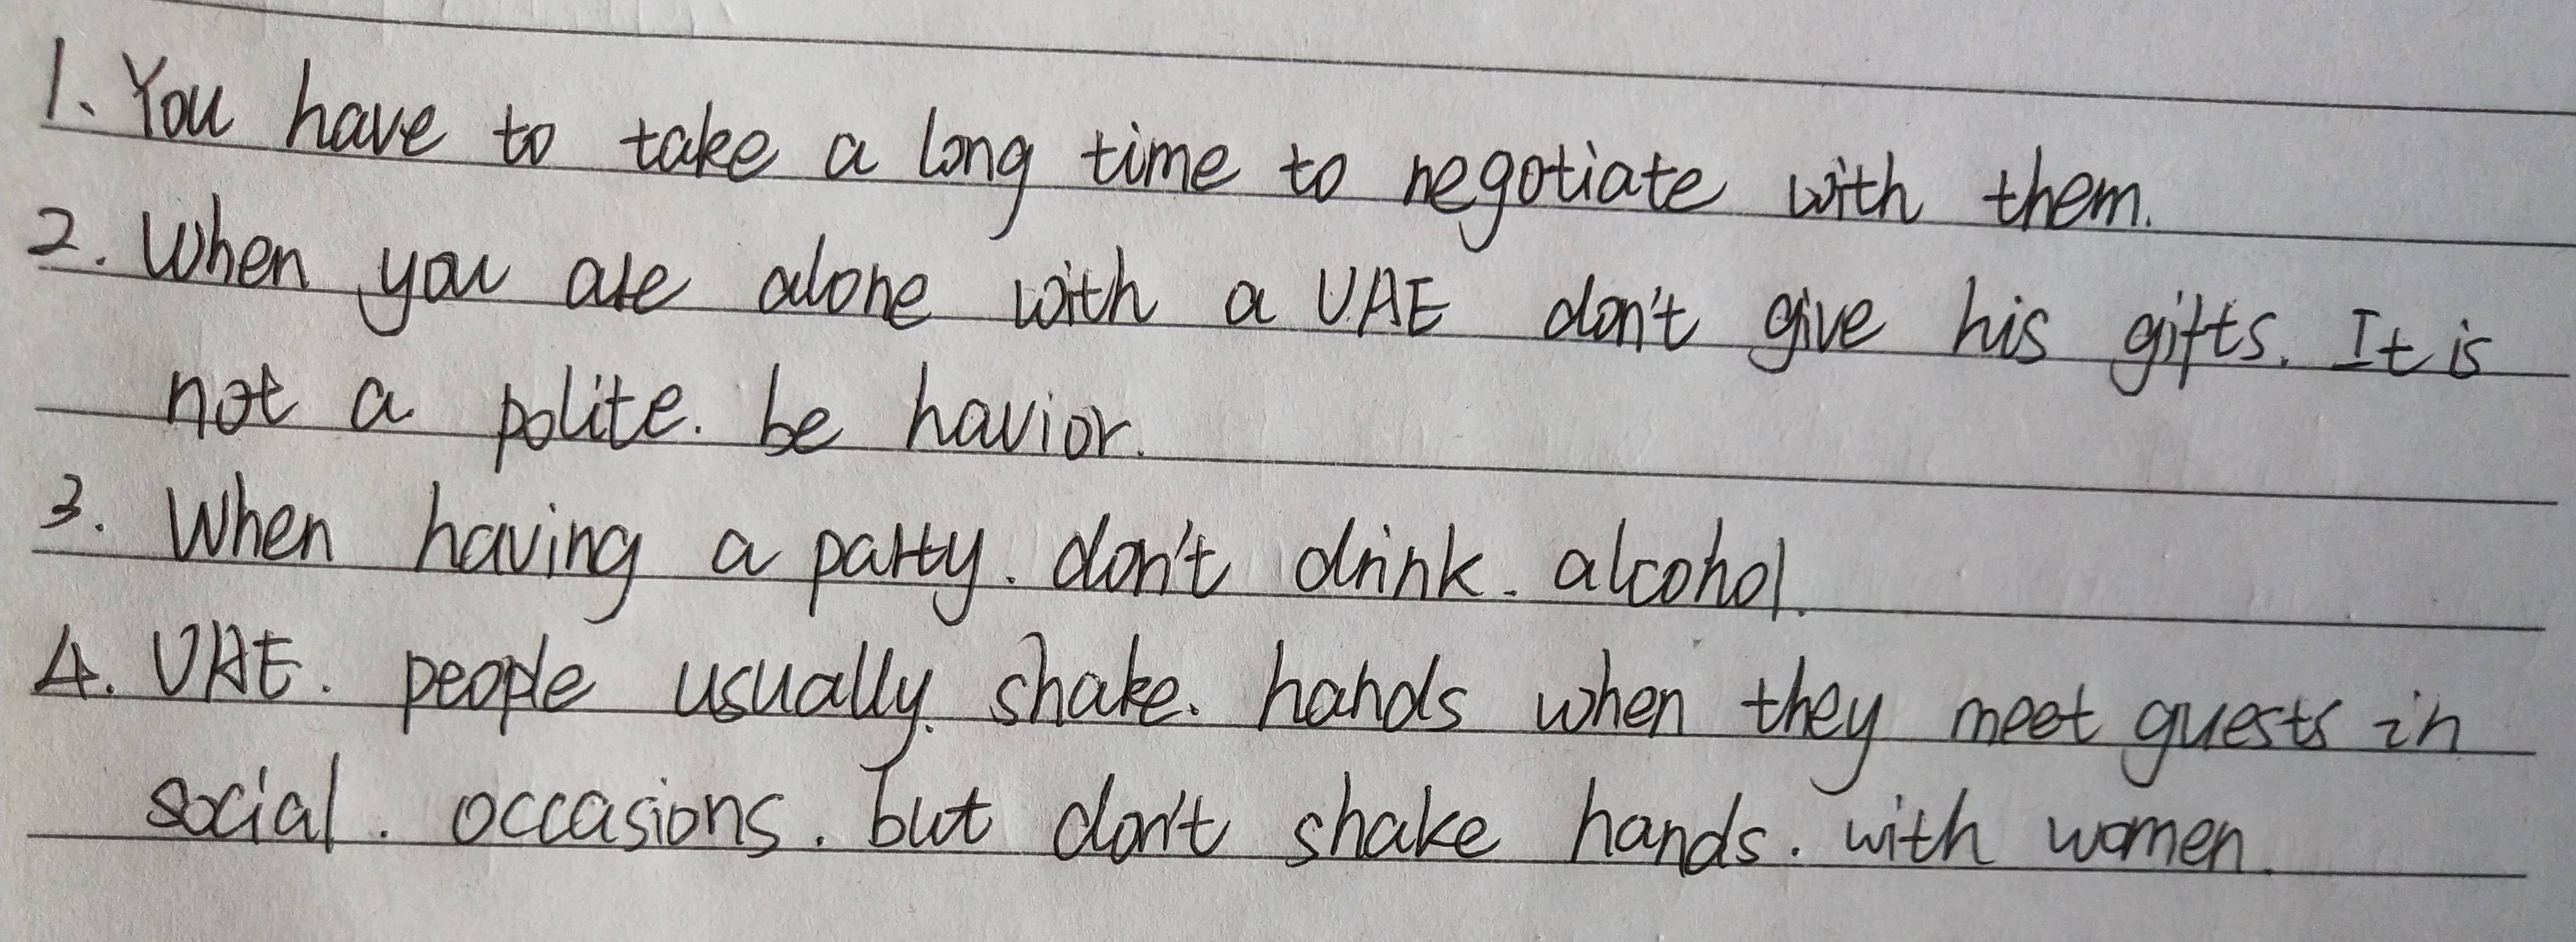 1. You have to take a long time to negotiate with them.
2. When you are alone with a UAE don't give his gifts. It is
not a polite. be havior.
3. When having a party. don't drink. alcohol.
4. UAE. people usually. shake. hands when they meet guests in
social. occasions. but don't shake hands. with women.